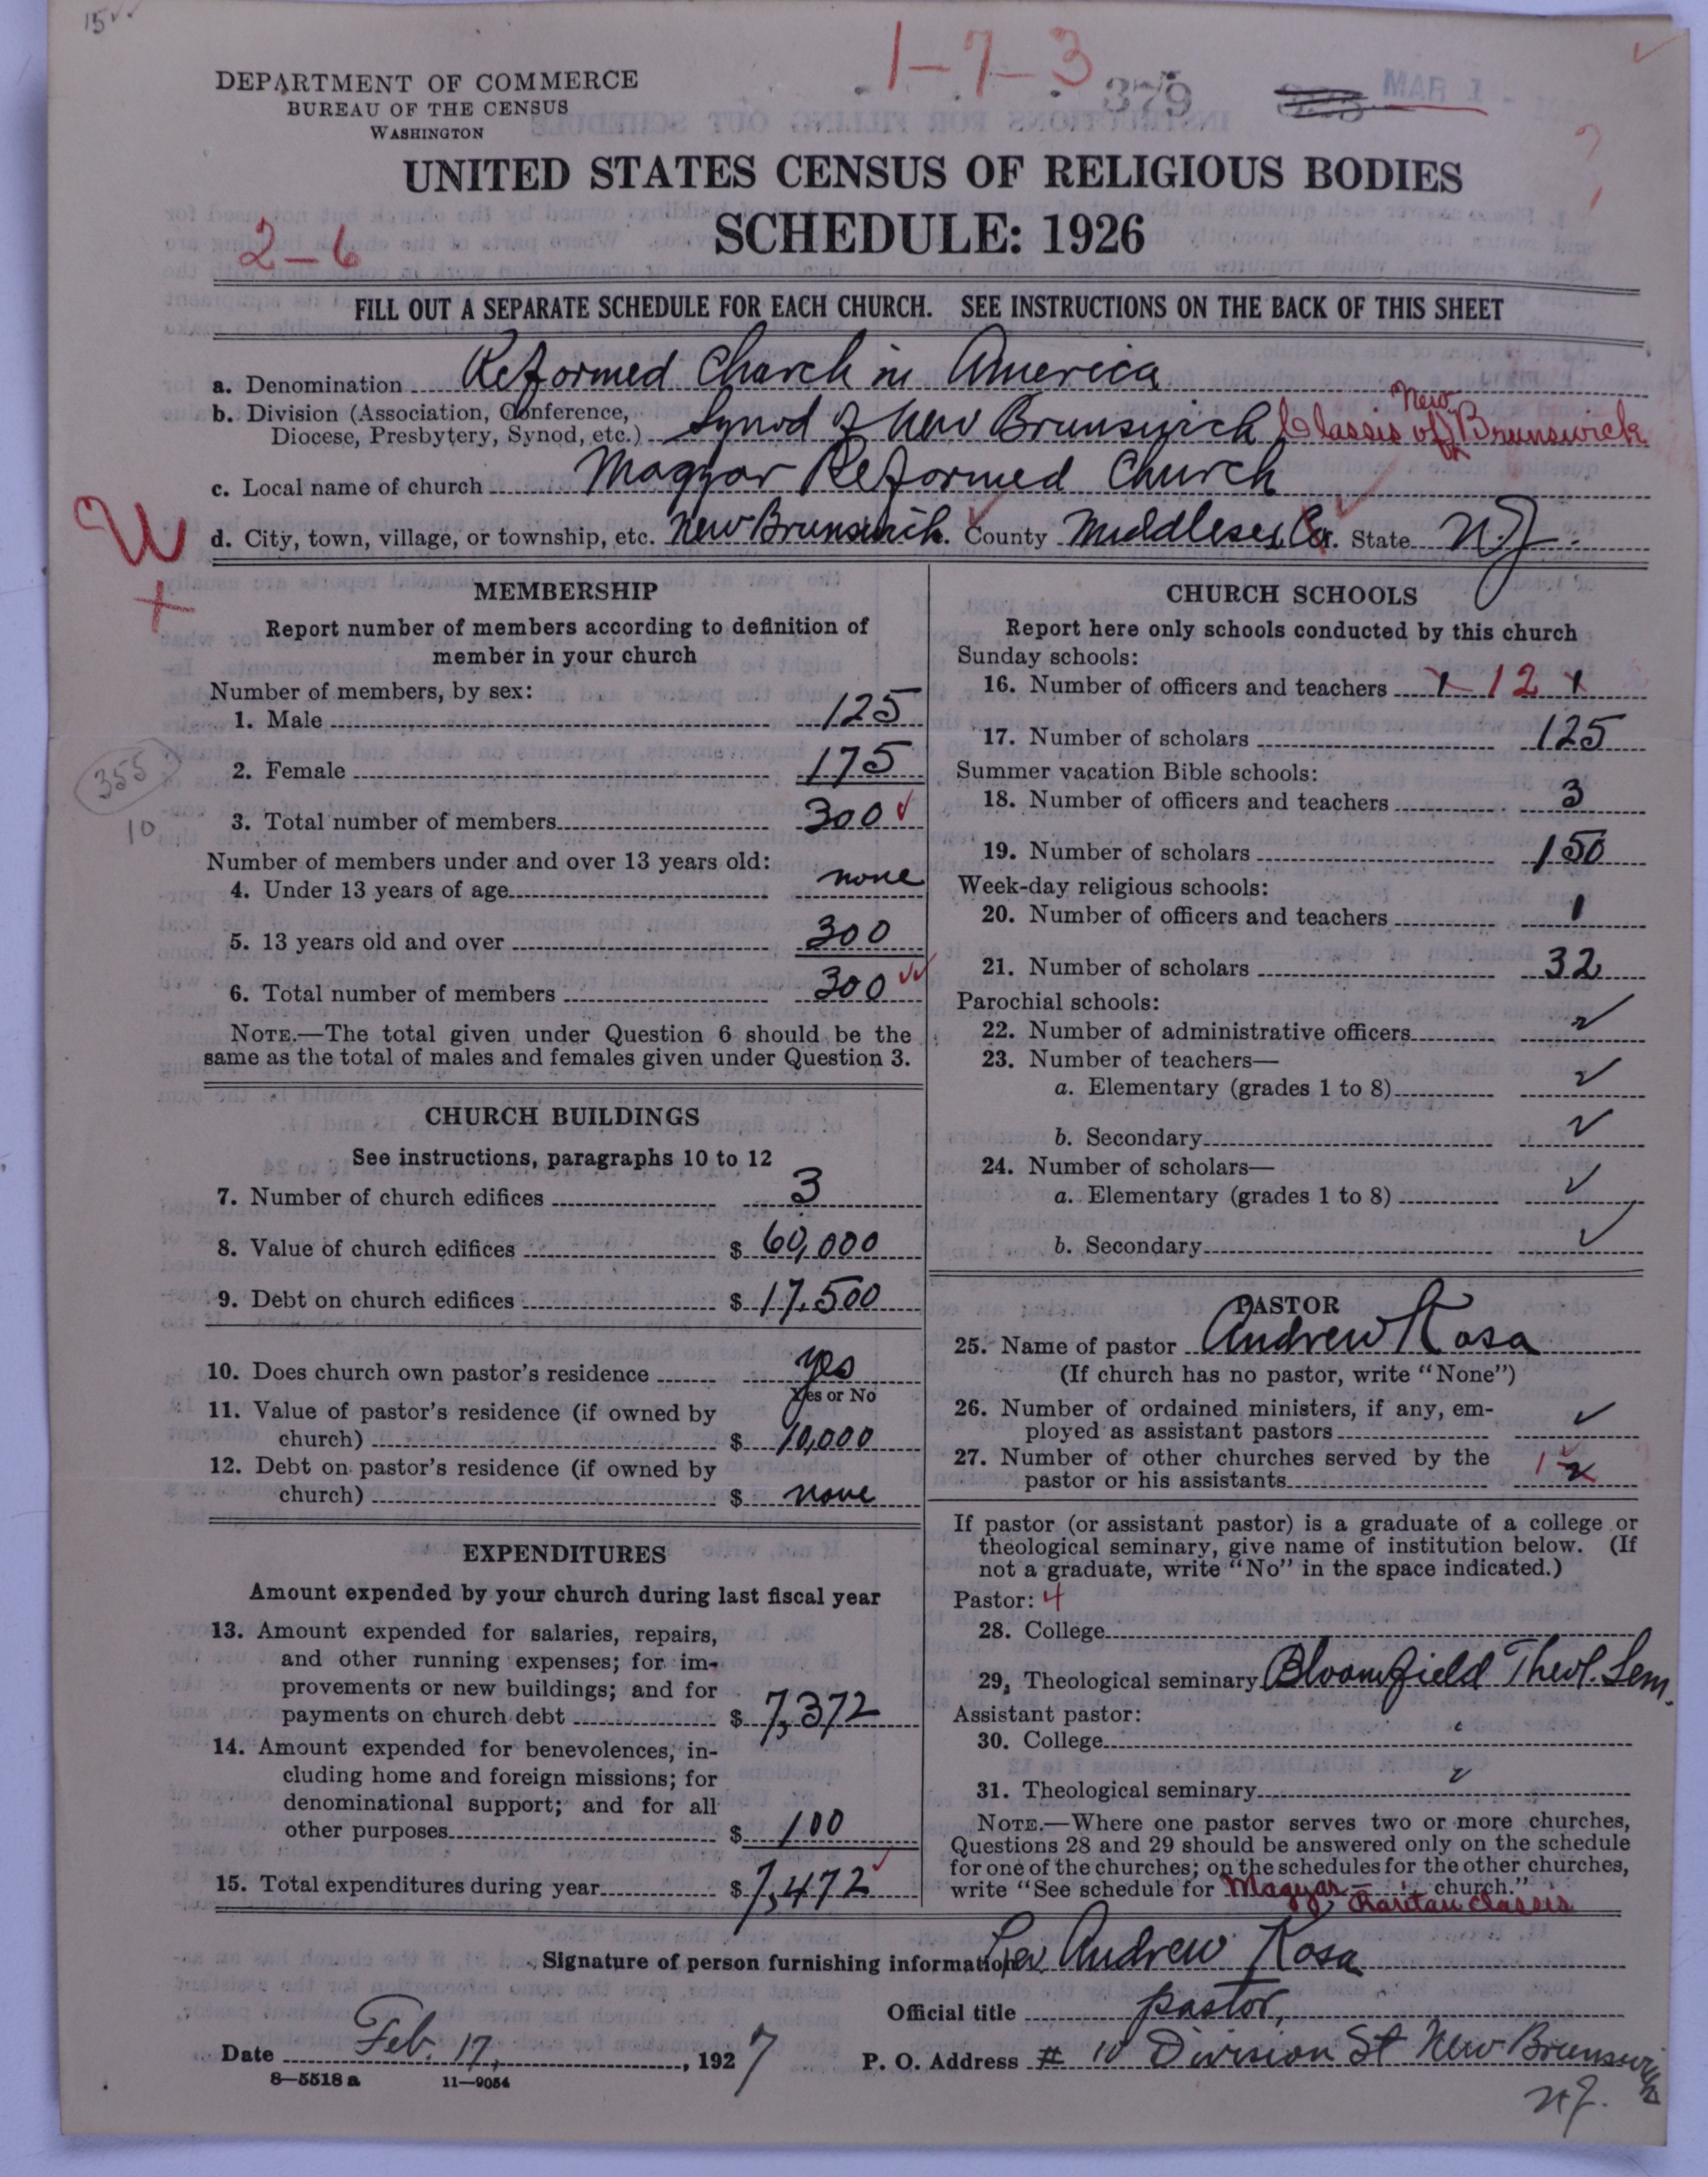 15
1-7-3
379
MAR 1
DEPARTMENT OF COMMERCE
BUREAU OF THE CENSUS
WASHINGTON
UNITED STATES CENSUS OF RELIGIOUS BODIES
SCHEDULE: 1926
2-6
FILL OUT A SEPARATE SCHEDULE FOR EACH CHURCH. SEE INSTRUCTIONS ON THE BACK OF THIS SHEET
a. Denomination Reformed Church in America
b. Division (Association, Conference, Diocese, Presbytery, Synod, etc.) Synod of New Brunswick Classis of New Brunswick
c. Local name of church Magyar Reformed Church
W
d. City, town, village, or township, etc. New Brunswick. County Middlesex Co. State N.J.
X
MEMBERSHIP
Report number of members according to definition of
member in your church
Number of members, by sex:
1. Male 125
2. Female 175
355
10
3. Total number of members 300
Number of members under and over 13 years old:
4. Under 13 years of age none
5. 13 years old and over 300
6. Total number of members 300
NOTE.—The total given under Question 6 should be the
same as the total of males and females given under Question 3.
CHURCH BUILDINGS
See instructions, paragraphs 10 to 12
7. Number of church edifices 3
8. Value of church edifices $ 60,000
9. Debt on church edifices $ 17,500
10. Does church own pastor's residence yes
Yes or No
11. Value of pastor's residence (if owned by
church) $ 10,000
12. Debt on pastor's residence (if owned by
church) $ none
EXPENDITURES
Amount expended by your church during last fiscal year
13. Amount expended for salaries, repairs,
and other running expenses; for im-
provements or new buildings; and for
payments on church debt $ 7,372
14. Amount expended for benevolences, in-
cluding home and foreign missions; for
denominational support; and for all
other purposes $ 100
15. Total expenditures during year $ 7,472
CHURCH SCHOOLS
Report here only schools conducted by this church
Sunday schools:
16. Number of officers and teachers x 12 x
17. Number of scholars 125
Summer vacation Bible schools:
18. Number of officers and teachers 3
19. Number of scholars 150
Week-day religious schools:
20. Number of officers and teachers 1
21. Number of scholars 32
Parochial schools:
22. Number of administrative officers
23. Number of teachers—
a. Elementary (grades 1 to 8)
b. Secondary
24. Number of scholars—
a. Elementary (grades 1 to 8)
b. Secondary
PASTOR
25. Name of pastor Andrew Kosa
(If church has no pastor, write "None")
26. Number of ordained ministers, if any, em-
ployed as assistant pastors
27. Number of other churches served by the
pastor or his assistants 1
If pastor (or assistant pastor) is a graduate of a college or
theological seminary, give name of institution below. (If
not a graduate, write "No" in the space indicated.)
Pastor: 4
28. College
29. Theological seminary Bloomfield Theol. Sem.
Assistant pastor:
30. College
31. Theological seminary
NOTE.—Where one pastor serves two or more churches,
Questions 28 and 29 should be answered only on the schedule
for one of the churches; on the schedules for the other churches,
write "See schedule for Magyar church."
Raritan Classis
Signature of person furnishing information Rev Andrew Kosa
Official title pastor,
Date Feb. 17, 1927
P. O. Address # 10 Division St New Brunswick
N.J.
8—5518 a 11—9054